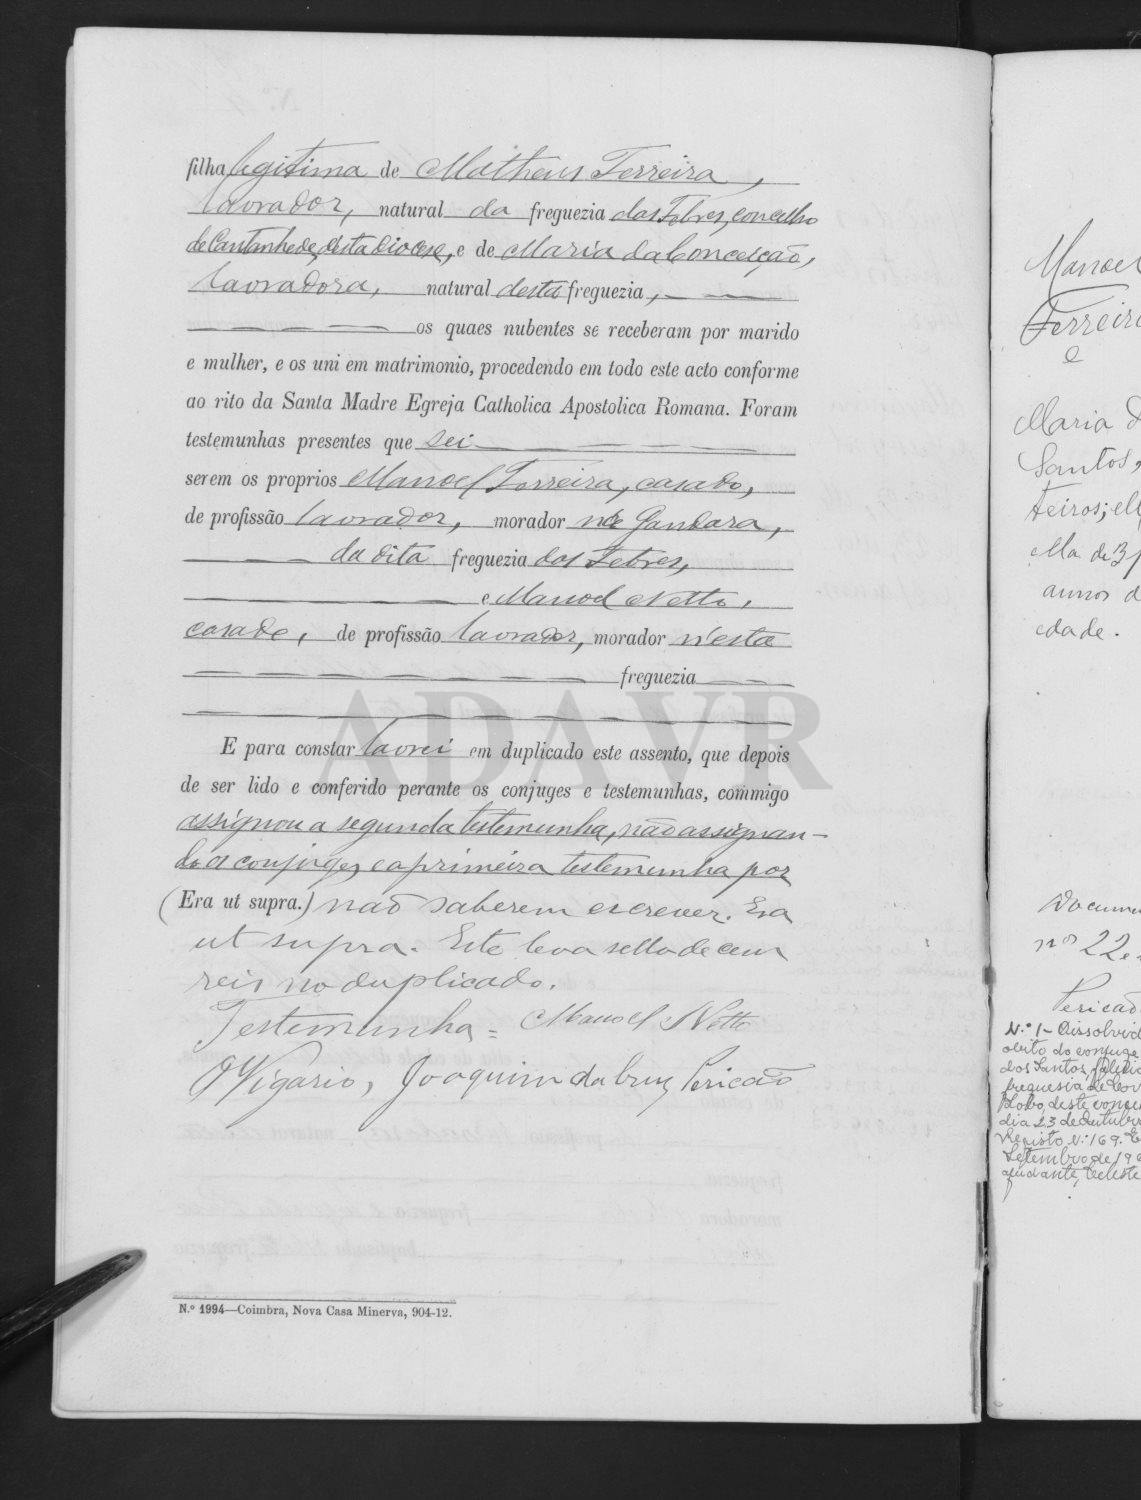 filha legitima de Matheus Ferreira,
lavrador, natural da freguezia das Febres, concelho
de Cantanhede, desta diocese, e de Maria da Conceição,
lavradora, natural desta freguezia,
os quaes nubentes se receberam por marido
e mulher, e os uni em matrimonio, procedendo em todo este acto conforme
ao rito da Santa Madre Egreja Catholica Apostolica Romana. Foram
testemunhas presentes que sei
serem os proprios Manoel Ferreira, casado,
de profissão lavrador, morador na Gandara,
da dita freguezia das Febres,
e Manoel Netto,
casado, de profissão lavrador, morador n'esta
freguezia
E para constar lavrei em duplicado este assento, que depois
de ser lido e conferido perante os conjuges e testemunhas, commigo
assignou a segunda testemunha, não assignan-
do os conjuges e a primeira testemunha por
(Era ut supra.) não saberem escrever. Era
ut supra. Este leva sello de cem
reis no duplicado.
Testemunha = Manoel Netto
O Vigario, Joaquim da Cruz Pericão
Nº 1994—Coimbra, Nova Casa Minerva, 904-12.
ADAVR
Manoel
Ferreira
e
Maria d
Santos,
teiros; ell
ella de 3
annos d
edade.
Docume
nos 22 e
Pericão
N.º 1- Dissolvid
obito do conjuge
dos Santos, falecid
freguesia de Cov
Lobo, deste conce
dia 23 de Outubro
Registo N.º 169.
Setembro de 19
ajudante, Celeste